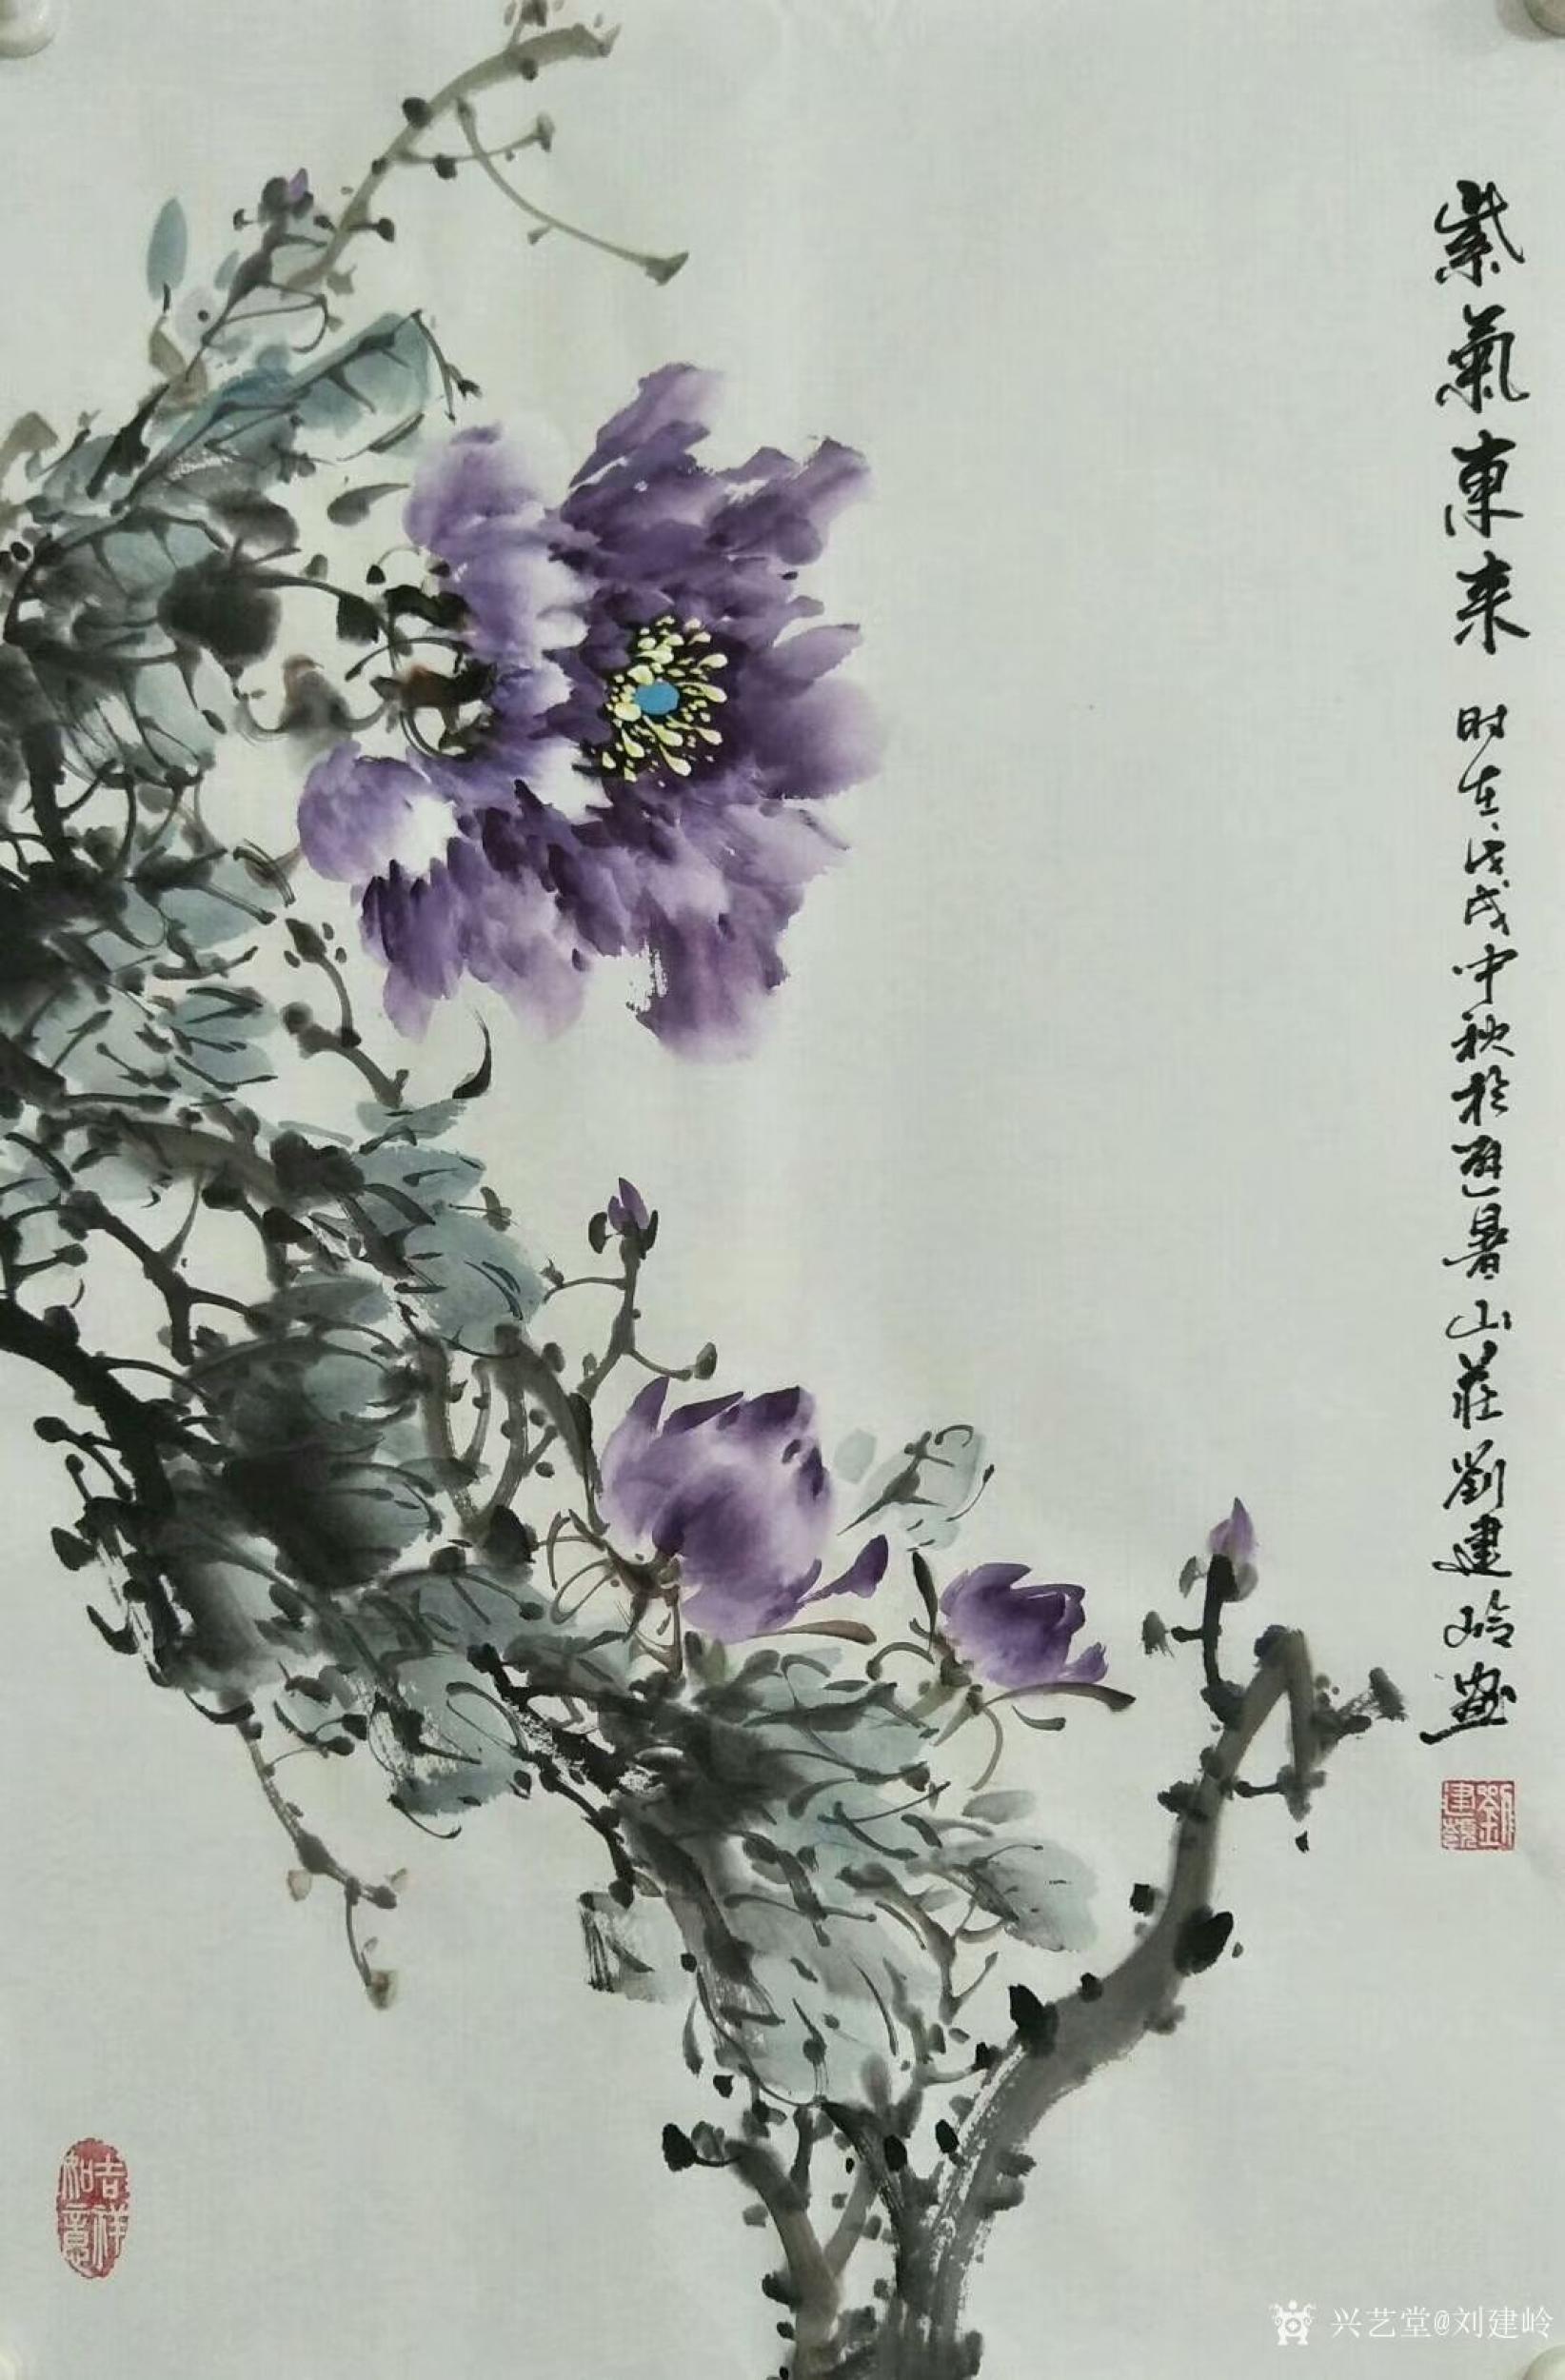 紫氣東来
时在戊戌中秋於避暑山莊劉建岭画
劉建嶺
吉祥如意
兴艺堂@刘建岭